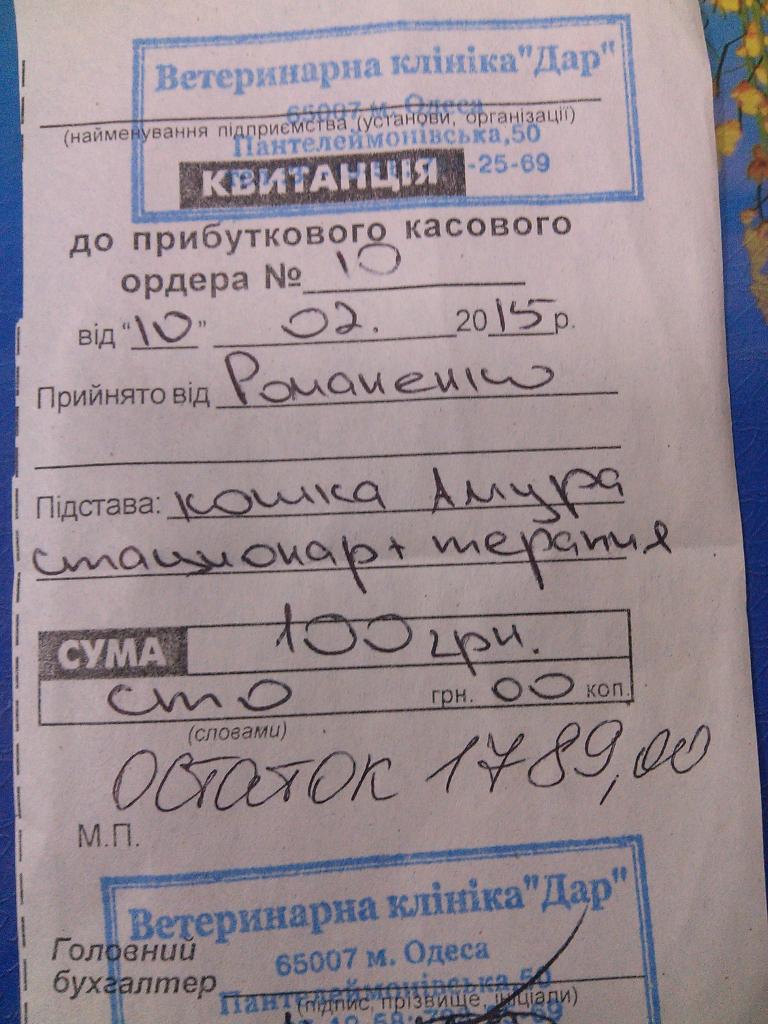 Ветеринарна клініка"Дар"
65007 м. Одеса
(найменування підприємства (установи, організації)
Пантелеймонівська,50
-25-69
КВИТАНЦІЯ
до прибуткового касового
ордера № 10
від "10" 02. 2015 р.
Прийнято від Романенко
Підстава: кошка Амура
стационар + терапия
СУМА 100 грн.
сто грн. 00 коп.
(словами)
ОСТАТОК 1789,00
М.П.
Ветеринарна клініка"Дар"
Головний
65007 м. Одеса
бухгалтер
Пантелеймонівська,50
(підпис, прізвище, ініціали)